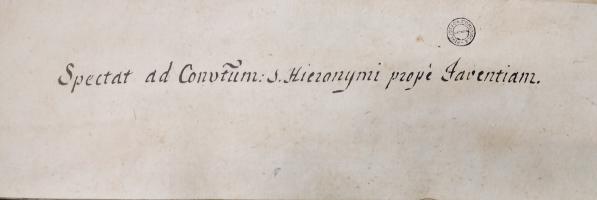 Spectat ad Convtũm: S. Hieronymi propè Faventiam.